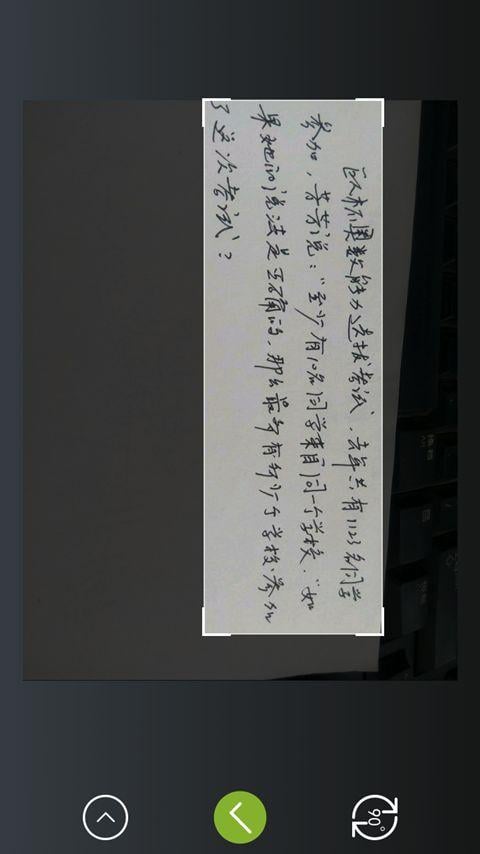 区杯奥数能力选拔考试，去年共有1123名同学
参加，芳芳说：“至少有10名同学来自同一个学校.”如
果她的说法是正确的，那么最多有多少个学校参加
了这次考试？
90°